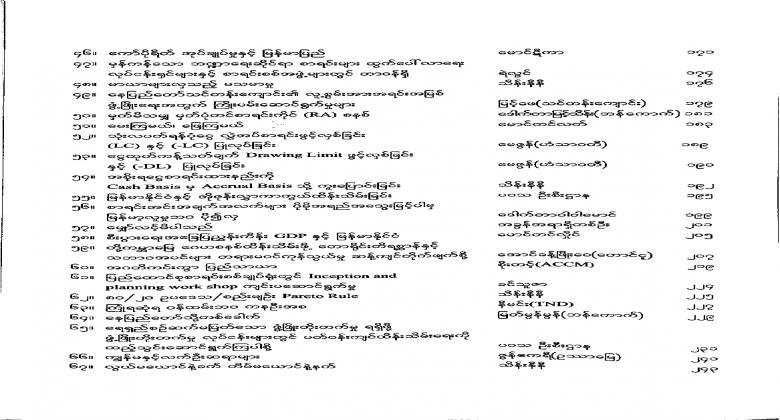 ၄၆။ ကော်ပိုရိတ် အုပ်ချုပ်မှုနှင့် မြန်မာပြည် မောင်ရီကာ ၁၇၁
၄၇။ မှန်ကန်သော ဘဏ္ဍာရေးဆိုင်ရာ စာရင်းများ ထွက်ပေါ်လာရေး
လုပ်ငန်းရှင်များနှင့် စာရင်းစစ်အဖွဲ့များတွင် တာဝန်ရှိ ရဲလွင် ၁၇၄
၄၈။ မာယာများလှသည့် မသမာမှု သိန်းနီနီ ၁၇၆
၄၉။ နေပြည်တော်သင်တန်းကျောင်း၏ လူ့စွမ်းအားအရင်းအမြစ်
ဖွံ့ဖြိုးရေးအတွက် ကြိုးပမ်းဆောင်ရွက်မှုများ မြင့်မေ(သင်တန်းကျောင်း) ၁၇၉
၅၀။ မှတ်မိသမျှ မှတ်ပုံတင်စာရင်းကိုင် (RA) စနစ် ဒေါက်တာမြင့်သိန်း(ဘန်ကောက်) ၁၈၁
၅၁။ မေးကြမယ်၊ ဖြေကြမယ် မောင်ထင်လတ် ၁၈၃
၅၂။ သုံးလပတ်ရန်ပုံငွေ လွှဲအပ်စာရင်းဖွင့်လှစ်ခြင်း
(LC) နှင့် (-LC) ပြုလုပ်ခြင်း မေဇွန်(ဟံသာဝတီ) ၁၈၉
၅၃။ ငွေထုတ်ကန့်သတ်ချက် Drawing Limit ဖွင့်လှစ်ခြင်း
နှင့် (-DL) ပြုလုပ်ခြင်း မေဇွန်(ဟံသာဝတီ) ၁၉၀
၅၄။ အစိုးရငွေစာရင်းထားနည်းကို
Cash Basis မှ Accrual Basis သို့ ကူးပြောင်းခြင်း သိန်းနီနီ ၁၉၂
၅၅။ မြန်မာနိုင်ငံနှင့် တိုဇုန်းလွှာကာကွယ်ထိန်းသိမ်းခြင်း ပဝသ ဦးစီးဌာန ၁၉၅
၅၆။ စာရင်းအင်းအချက်အလက်များ ပိုမိုအရည်အသွေးမြင့်ပါမှ
မြန်မာ့လူမှုဘဝ ပို၍လှ ဒေါက်တာဝါဝါမောင် ၁၉၉
၅၇။ မျှော်လင့်မိပါသည် အခွန်အရာရှိတစ်ဦး ၂၀၁
၅၈။ စီးပွားရေးအခြေပြညွှန်ကိန်း GDP နှင့် မြန်မာနိုင်ငံ မောင်တင်လှိုင် ၂၀၅
၅၉။ တို့ကမ္ဘာမြေ ဂေဟစနစ်ထိန်းသိမ်းဖို့ တောရိုင်းတိရစ္ဆာန်နှင့်
သဘာဝအပင်များ တရားမဝင်ကုန်သွယ်မှု ဆန့်ကျင်တိုက်ဖျက်စို့ အောင်ခန့်ဖြိုးဝေ(တောင်ငူ) ၂၀၇
၆၀။ အဂတိကင်းကွာ ပြည်သာယာ စိုးတင့်(ACCM) ၂၁၉
၆၁။ ပြည်ထောင်စုစာရင်းစစ်ချုပ်ရုံးတွင် Inception and
planning work ကျင်းပဆောင်ရွက်မှု ခင်သူဇာ ၂၂၄
၆၂။ ၈၀/၂၀ ဥပဒေသ/စည်းမျဉ်း Pareto Rule သိန်းနီနီ ၂၂၅
၆၃။ ကြုံရဆုံရ ဝန်ထမ်းဘဝ ကနဦးအစ နီမင်း(TND) ၂၂၇
၆၄။ နေပြည်တော်သို့တစ်ခေါက် မြတ်မွန်မွန်(ဘန်ကောက်) ၂၂၉
၆၅။ ရေရှည်စဉ်ဆက်မပြတ်သော ဖွံ့ဖြိုးတိုးတက်မှု ရရှိဖို့
ဖွံ့ဖြိုးတိုးတက်မှု လုပ်ငန်းများတွင် ပတ်ဝန်းကျင်ထိန်းသိမ်းရေးကို
ထည့်သွင်းဆောင်ရွက်ကြပါစို့ ပဝသ ဦးစီးဌာန ၂၃၀
၆၆။ ကျွန်မနှင့်လက်ဦးဆရာများ ဇွန်ဧကရီ(ဥဿာမြေ) ၂၄၀
၆၇။ လွယ်မယောင်နဲ့ခက် တိမ်မယောင်နဲ့နက် သိန်းနီနီ ၂၄၃